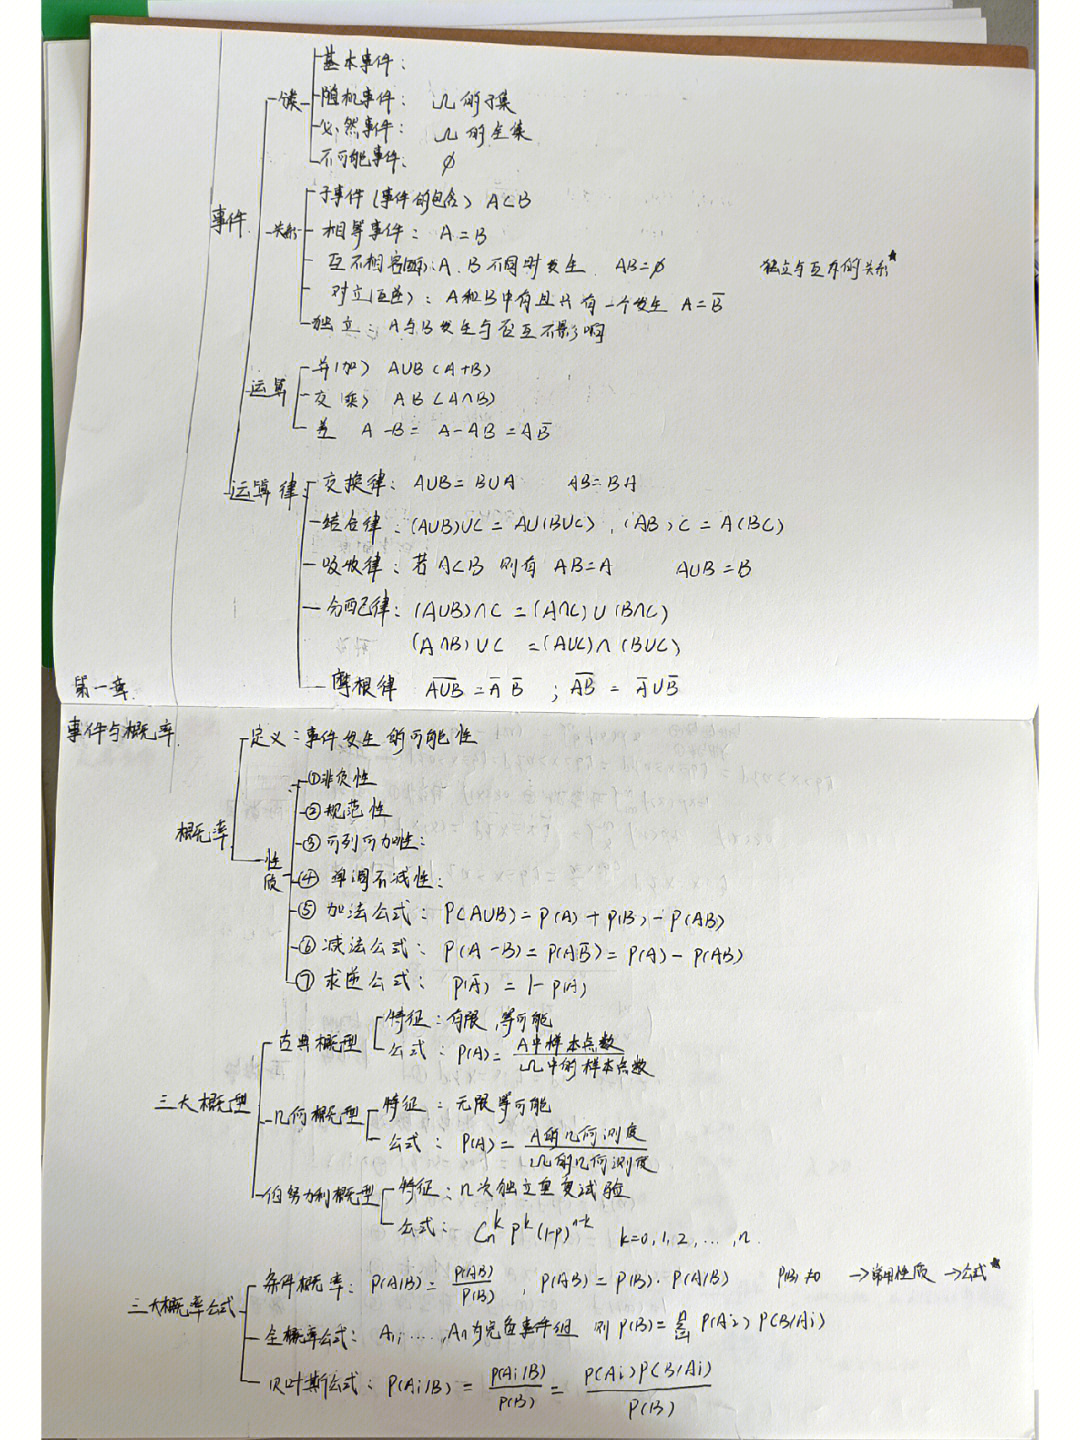 基本事件：
分类 随机事件： Ω的子集
必然事件： Ω的全集
不可能事件： ∅
子事件(事件的包含) A⊂B
事件 关系 相等事件： A=B
互不相容(互斥)：A、B不同时发生. AB=∅ 独立与互斥的关系★
对立(互逆)：A和B中有且只有一个发生 A=B̅
独立：A与B发生与否互不影响
并(加) A∪B(A+B)
运算 交(乘) AB(A∩B)
差 A-B= A-AB=AB̅
运算律 交换律：A∪B=B∪A AB=BA
结合律：(A∪B)∪C=A∪(B∪C)，(AB)C=A(BC)
吸收律：若A⊂B 则有 AB=A A∪B=B
分配律：(A∪B)∩C=(A∩C)∪(B∩C)
(A∩B)∪C =(A∪C)∩(B∪C)
摩根律 A∪B̅ = A̅ B̅ ；A̅B̅ = A̅∪B̅
第一章.
事件与概率.
定义：事件发生的可能性
①非负性
②规范性
概率 ③可列可加性：
性质 ④单调不减性：
⑤加法公式： P(A∪B)=P(A)+P(B)-P(AB)
⑥减法公式： P(A-B)=P(AB̅)=P(A)-P(AB)
⑦求逆公式： P(A̅)=1-P(A)
古典概型 特征：有限，等可能
公式：P(A)= A中样本点数
Ω中的样本点数
三大概型 几何概型 特征：无限等可能
公式：P(A)= A的几何测度
Ω的几何测度
伯努力利概型 特征：n次独立重复试验
公式： Cₙᵏ Pᵏ(1-P)ⁿ⁻ᵏ k=0,1,2,…,n.
条件概率：P(A|B)= P(AB)/P(B) , P(AB)=P(B)·P(A|B) P(B)≠0 →常用性质→公式★
三大概率公式 全概率公式：A₁,……,Aₙ为完备事件组 则P(B)=Σⁿᵢ₌₁ P(Ai)P(B|Ai)
贝叶斯公式：P(Ai|B)= P(AiB)/P(B) = P(Ai)P(B|Ai)/P(B)